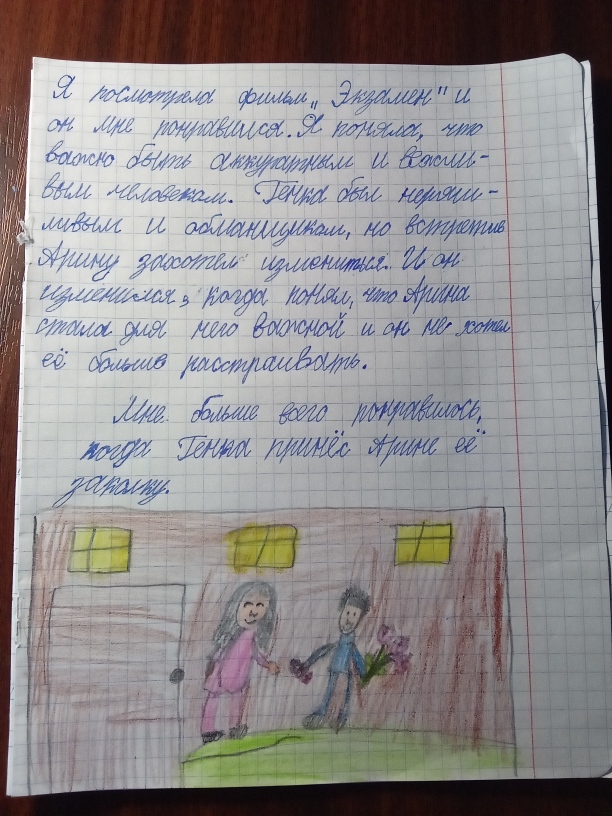 Я посмотрела фильм „Экзамен" и
он мне понравился. Я поняла, что
важно быть аккуратным и вежли-
вым человекам. Генка был неряш-
ливым и обманщикам, но встретив
Арину захотел измениться. И он
изменился, когда понял, что Арина
стала для него важной и он не хотел
её больше расстраивать.
Мне больше всего понравилось,
когда Генка принёс Арине её
заколку.